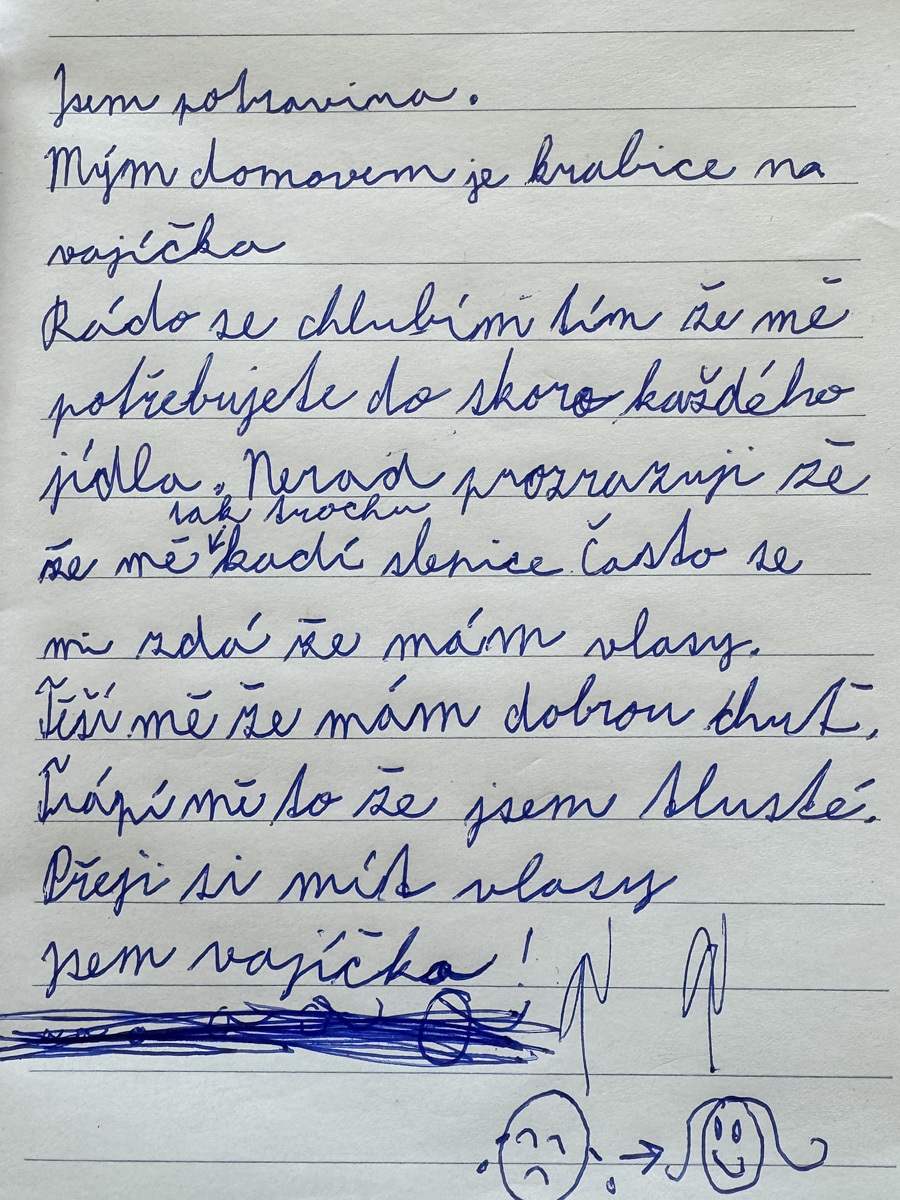 Jsem potravina.
Mým domovem je krabice na
vajíčka
Rádo se chlubím tím že mě
potřebujete do skoro každého
jídla. Nerad prozrazuji že
tak trochu
že mě kadí slepice Často se
mi zdá že mám vlasy.
Těší mě že mám dobrou chuť,
Trápí mě to že jsem tlusté.
Přeji si mít vlasy
jsem vajíčko!